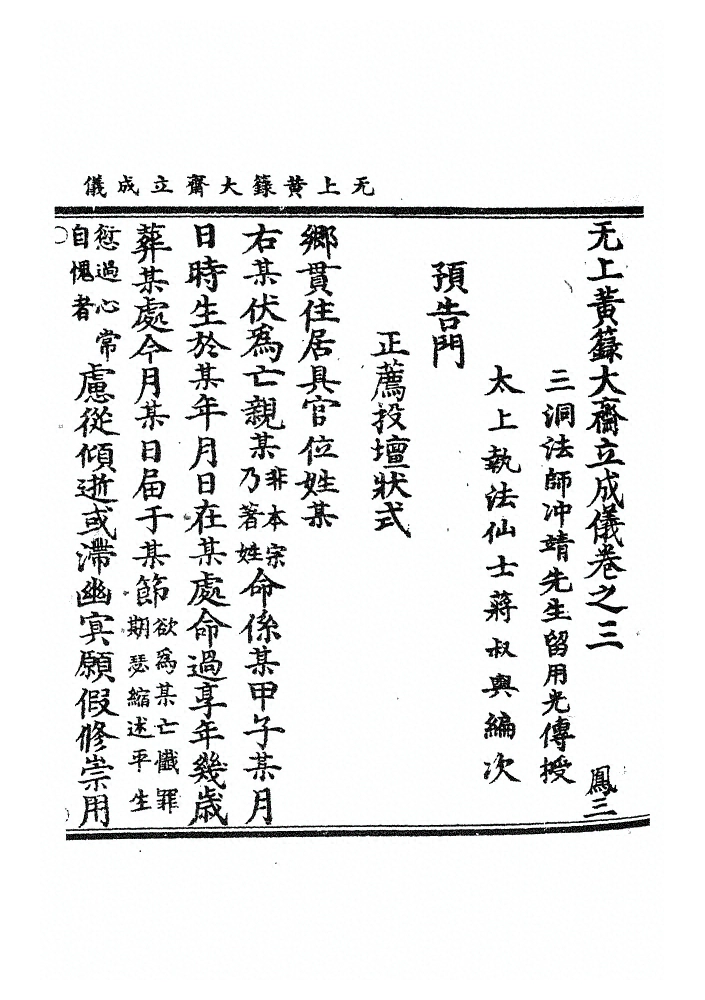 无上黃籙大齋立成儀
无上黃籙大齋立成儀卷之三　鳳三
三洞法師冲靖先生留用光傳授
太上執法仙士蔣叔輿編次
預告門
正薦投壇狀式
鄉貫住居具官位姓某
右某伏爲亡親某非本宗乃著姓命係某甲子某月
日時生於某年月日在某處命過享年幾歲
葬某處今月某日届于某節欲爲某亡懺罪期瑟縮述平生
愆過心常自愧者慮從傾逝或滯幽冥願假修崇用